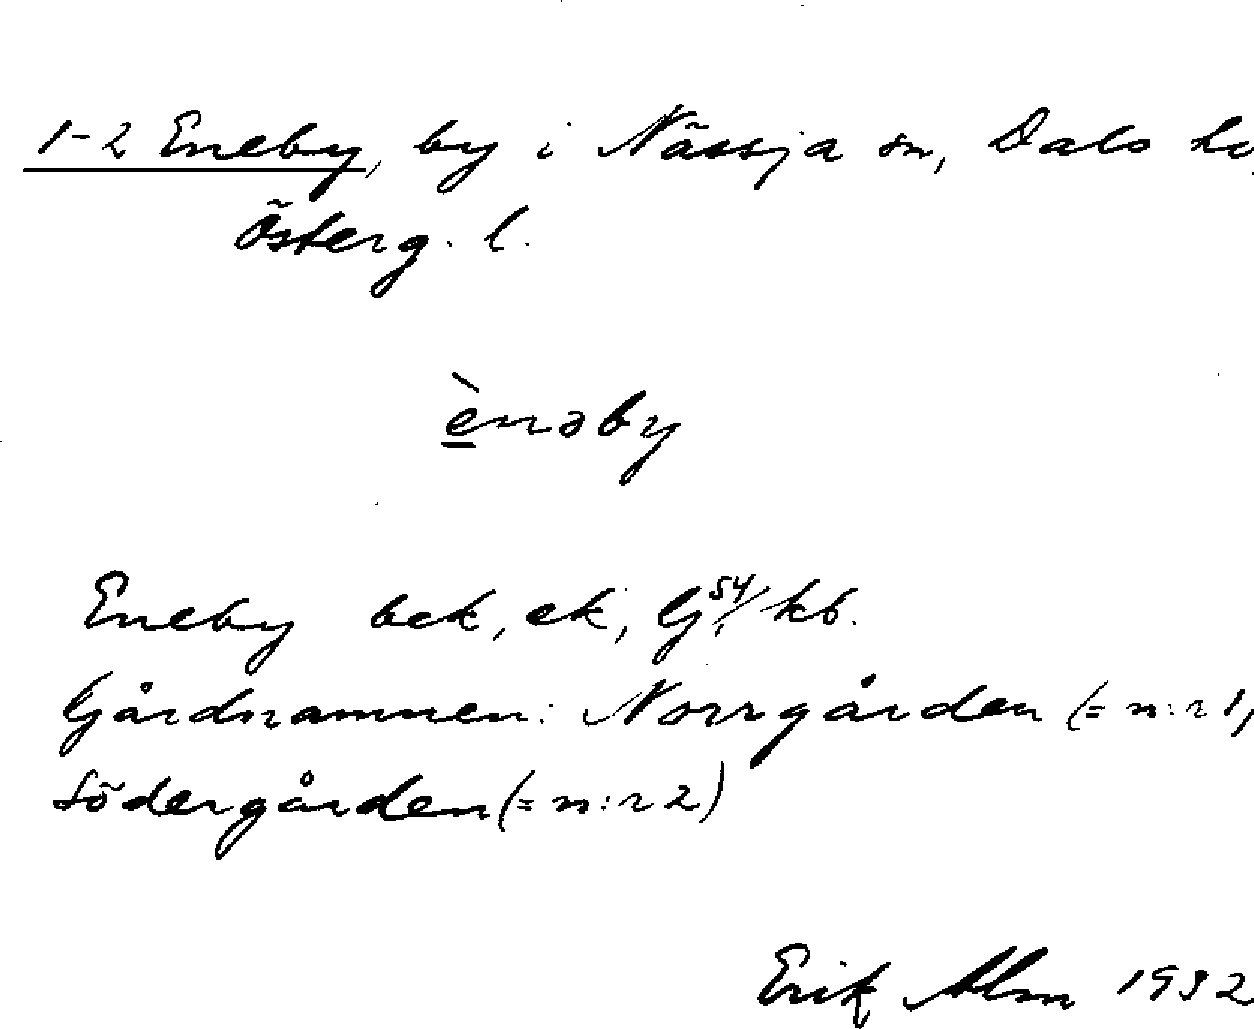 1-2 Eneby, by i Nässja sn, Dals hd,
Österg. l.
ènəby
Eneby bek, ek, Gj 54/1 kb.
Gårdnamnen: Norrgården (= n:r 1,
Södergården (= n:r 2)
Erik Alm 1932